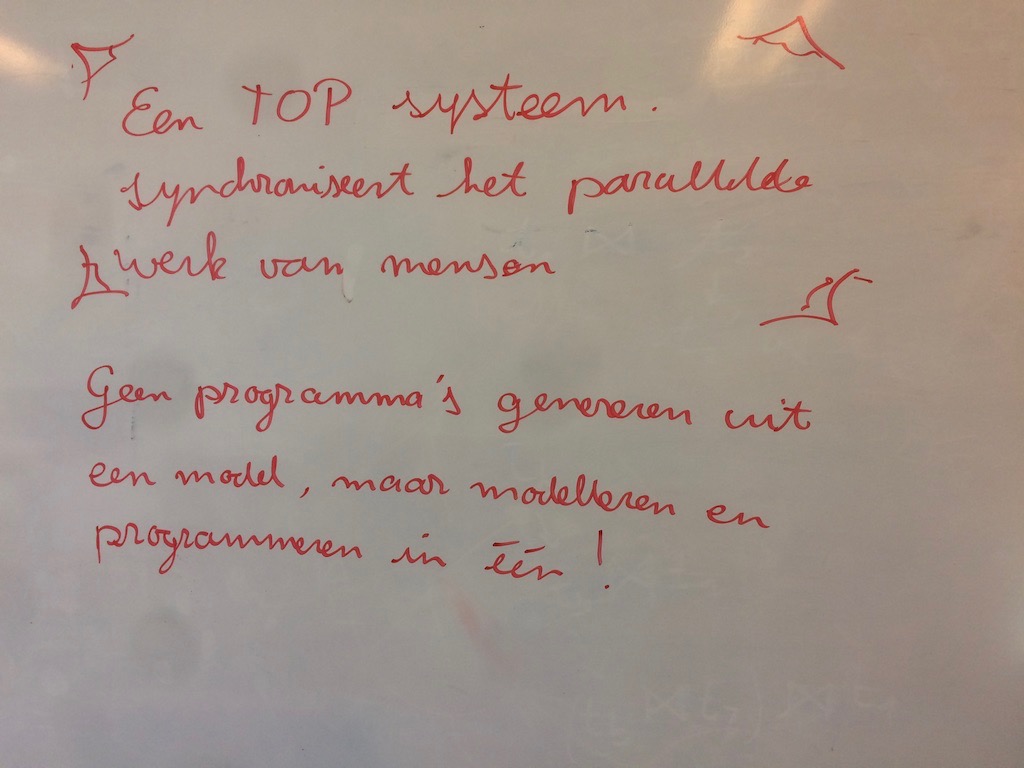 Een TOP systeem.
synchroniseert het parallelle
werk van mensen
Geen programma's genereren uit
een model, maar modelleren en
programmeren in één!